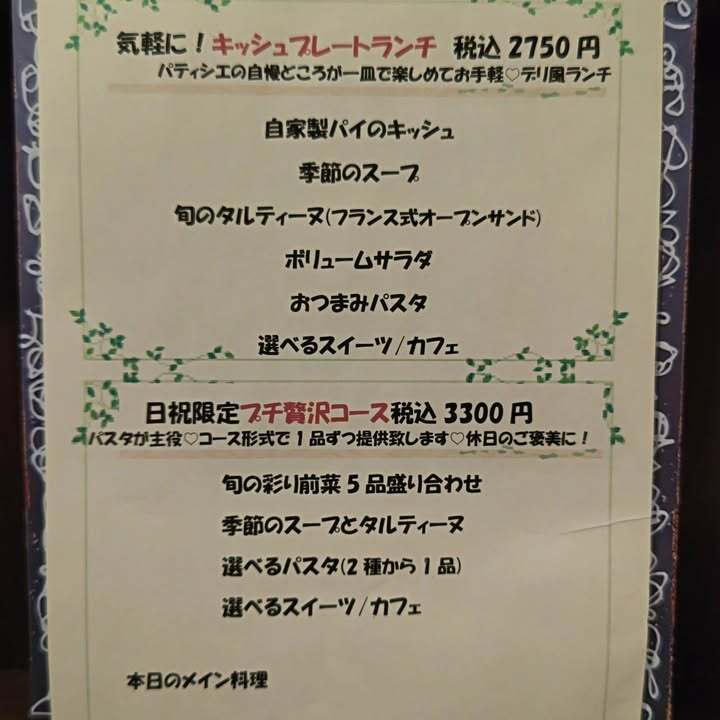 気軽に！キッシュプレートランチ 税込2750円
パティシエの自慢どころが一皿で楽しめてお手軽♡デリ風ランチ
自家製パイのキッシュ
季節のスープ
旬のタルティーヌ(フランス式オープンサンド)
ボリュームサラダ
おつまみパスタ
選べるスイーツ/カフェ
日祝限定プチ贅沢コース税込3300円
パスタが主役♡コース形式で1品ずつ提供致します♡休日のご褒美に！
旬の彩り前菜5品盛り合わせ
季節のスープとタルティーヌ
選べるパスタ(2種から1品)
選べるスイーツ/カフェ
本日のメイン料理